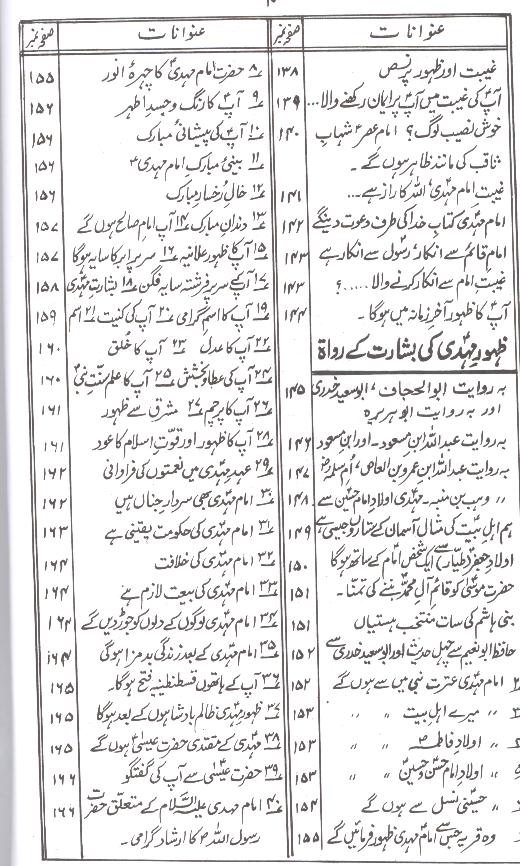 ۱۰
عنوانات صفحہ نمبر
غیبت اور ظہور پر نص ۱۳۸
آپؑ کی غیبت میں آپؑ پر ایمان رکھنے والا... ۱۳۹
خوش نصیب لوگ؟ امام عصرؑ شہاب ۱۴۰
ثاقب کی مانند ظاہر ہوں گے۔
غیبتِ امام مہدیؑ اللہ کا راز ہے... ۱۴۱
امام مہدیؑ کتابِ خدا کی طرف دعوت دینگے ۱۴۲
امام قائمؑ سے انکار رسولؐ سے انکار ہے ۱۴۳
غیبتِ امام سے انکار کرنے والا.....؟ ۱۴۳
آپؑ کا ظہور آخر زمانہ میں ہوگا۔ ۱۴۴
ظہورِ مہدیؑ کی بشارت کے رواۃ
بہ روایت ابوالحجاف، ابوسعید خدری ۱۴۵
اور بہ روایت ابوہریرہ
بہ روایت عبداللہ ابن مسعود۔ اور ابن مسعود ۱۴۶
بہ روایت عبداللہ ابن عمرو بن العاص، اُم سلمہؓ ۱۴۷
〃 وہب بن منبہ۔ مہدیؑ اولادِ امام حسینؑ سے ۱۴۸
ہم اہلِ بیتؑ کی مثال آسمان کے ستاروں جیسی ہے ۱۴۹
اولادِ جعفرؑ (طیار) سے ایک شخص امامؑ کے ساتھ ہوگا ۱۵۰
حضرت موسیٰؑ کو قائمِ آلِ محمدؐ بننے کی تمنا۔ ۱۵۱
بنی ہاشم کی سات منتخب ہستیاں ۱۵۱
حافظ ابونعیم سے چہل حدیث اور ابوسعید خدری سے ۱۵۲
امام مہدیؑ عترتِ نبیؐ میں سے ہوں گے ۱۵۲
〃 〃 میرے اہلِ بیتؑ 〃 〃 ۱۵۳
〃 〃 اولادِ فاطمہؑ 〃 〃 ۱۵۳
〃 〃 اولادِ امام حسنؑ و حسینؑ 〃 〃 ۱۵۳
〃 〃 حسینیؑ نسل سے ہوں گے ۱۵۴
وہ قریہ جس سے امام مہدیؑ ظہور فرمائیں گے ۱۵۵
عنوانات صفحہ نمبر
۸ حضرت امام مہدیؑ کا چہرۂ انور ۱۵۵
۹ آپؑ کا رنگ و جسدِ اطہر ۱۵۶
۱۰ آپؑ کی پیشانیٔ مبارک ۱۵۶
۱۱ بینیٔ مبارک امام مہدیؑ ۱۵۶
۱۲ خالِ رخسارِ مبارک ۱۵۶
۱۳ دندانِ مبارک ۱۴ آپ امامِ صالح ہوں گے ۱۵۷
۱۵ آپؑ کا ظہور علانیہ ۱۶ سر پر ابر کا سایہ ہوگا ۱۵۷
۱۷ آپؑ کے سر پر فرشتہ سایہ فگن ۱۸ بشارتِ مہدیؑ ۱۵۸
۱۹ آپؑ کا اسمِ گرامی ۲۰ آپؑ کی کنیت ۲۱ اسم ۱۵۹
۲۲ آپؑ کا عدل ۲۳ آپؑ کا خُلق ۱۶۰
۲۴ آپؑ کی عطا و بخشش ۲۵ آپؑ کا علمِ سنتِ نبیؐ ۱۶۰
۲۶ آپؑ کا پرچم ۲۷ مشرق سے ظہور ۱۶۱
۲۸ آپؑ کا ظہور اور قوتِ اسلام کا عود ۱۶۱
۲۹ عہدِ مہدیؑ میں نعمتوں کی فراوانی ۱۶۲
۳۰ امام مہدیؑ بھی سردارِ جناں ہیں ۱۶۲
۳۱ امام مہدیؑ کی حکومت یقینی ہے ۱۶۳
۳۲ امام مہدیؑ کی خلافت ۱۶۴
۳۳ امام مہدیؑ کی بیعت لازم ہے ۱۶۴
۳۴ امام مہدیؑ لوگوں کے دلوں کو جوڑ دیں گے ۱۶۴
۳۵ امام مہدیؑ کے بعد زندگی بدمزا ہوگی ۱۶۴
۳۶ آپؑ کے ہاتھوں قسطنطنیہ فتح ہوگا۔ ۱۶۵
۳۷ ظہورِ مہدیؑ ظالم بادشاہوں کے بعد ہوگا ۱۶۵
۳۸ مہدیؑ کے مقتدی حضرت عیسیٰؑ ہوں گے ۱۶۵
۳۹ حضرت عیسیٰؑ سے آپؑ کی گفتگو ۱۶۶
۴۰ امام مہدی علیہ السلام کے متعلق حضرت ۱۶۶
رسول اللہؐ کا ارشادِ گرامی۔